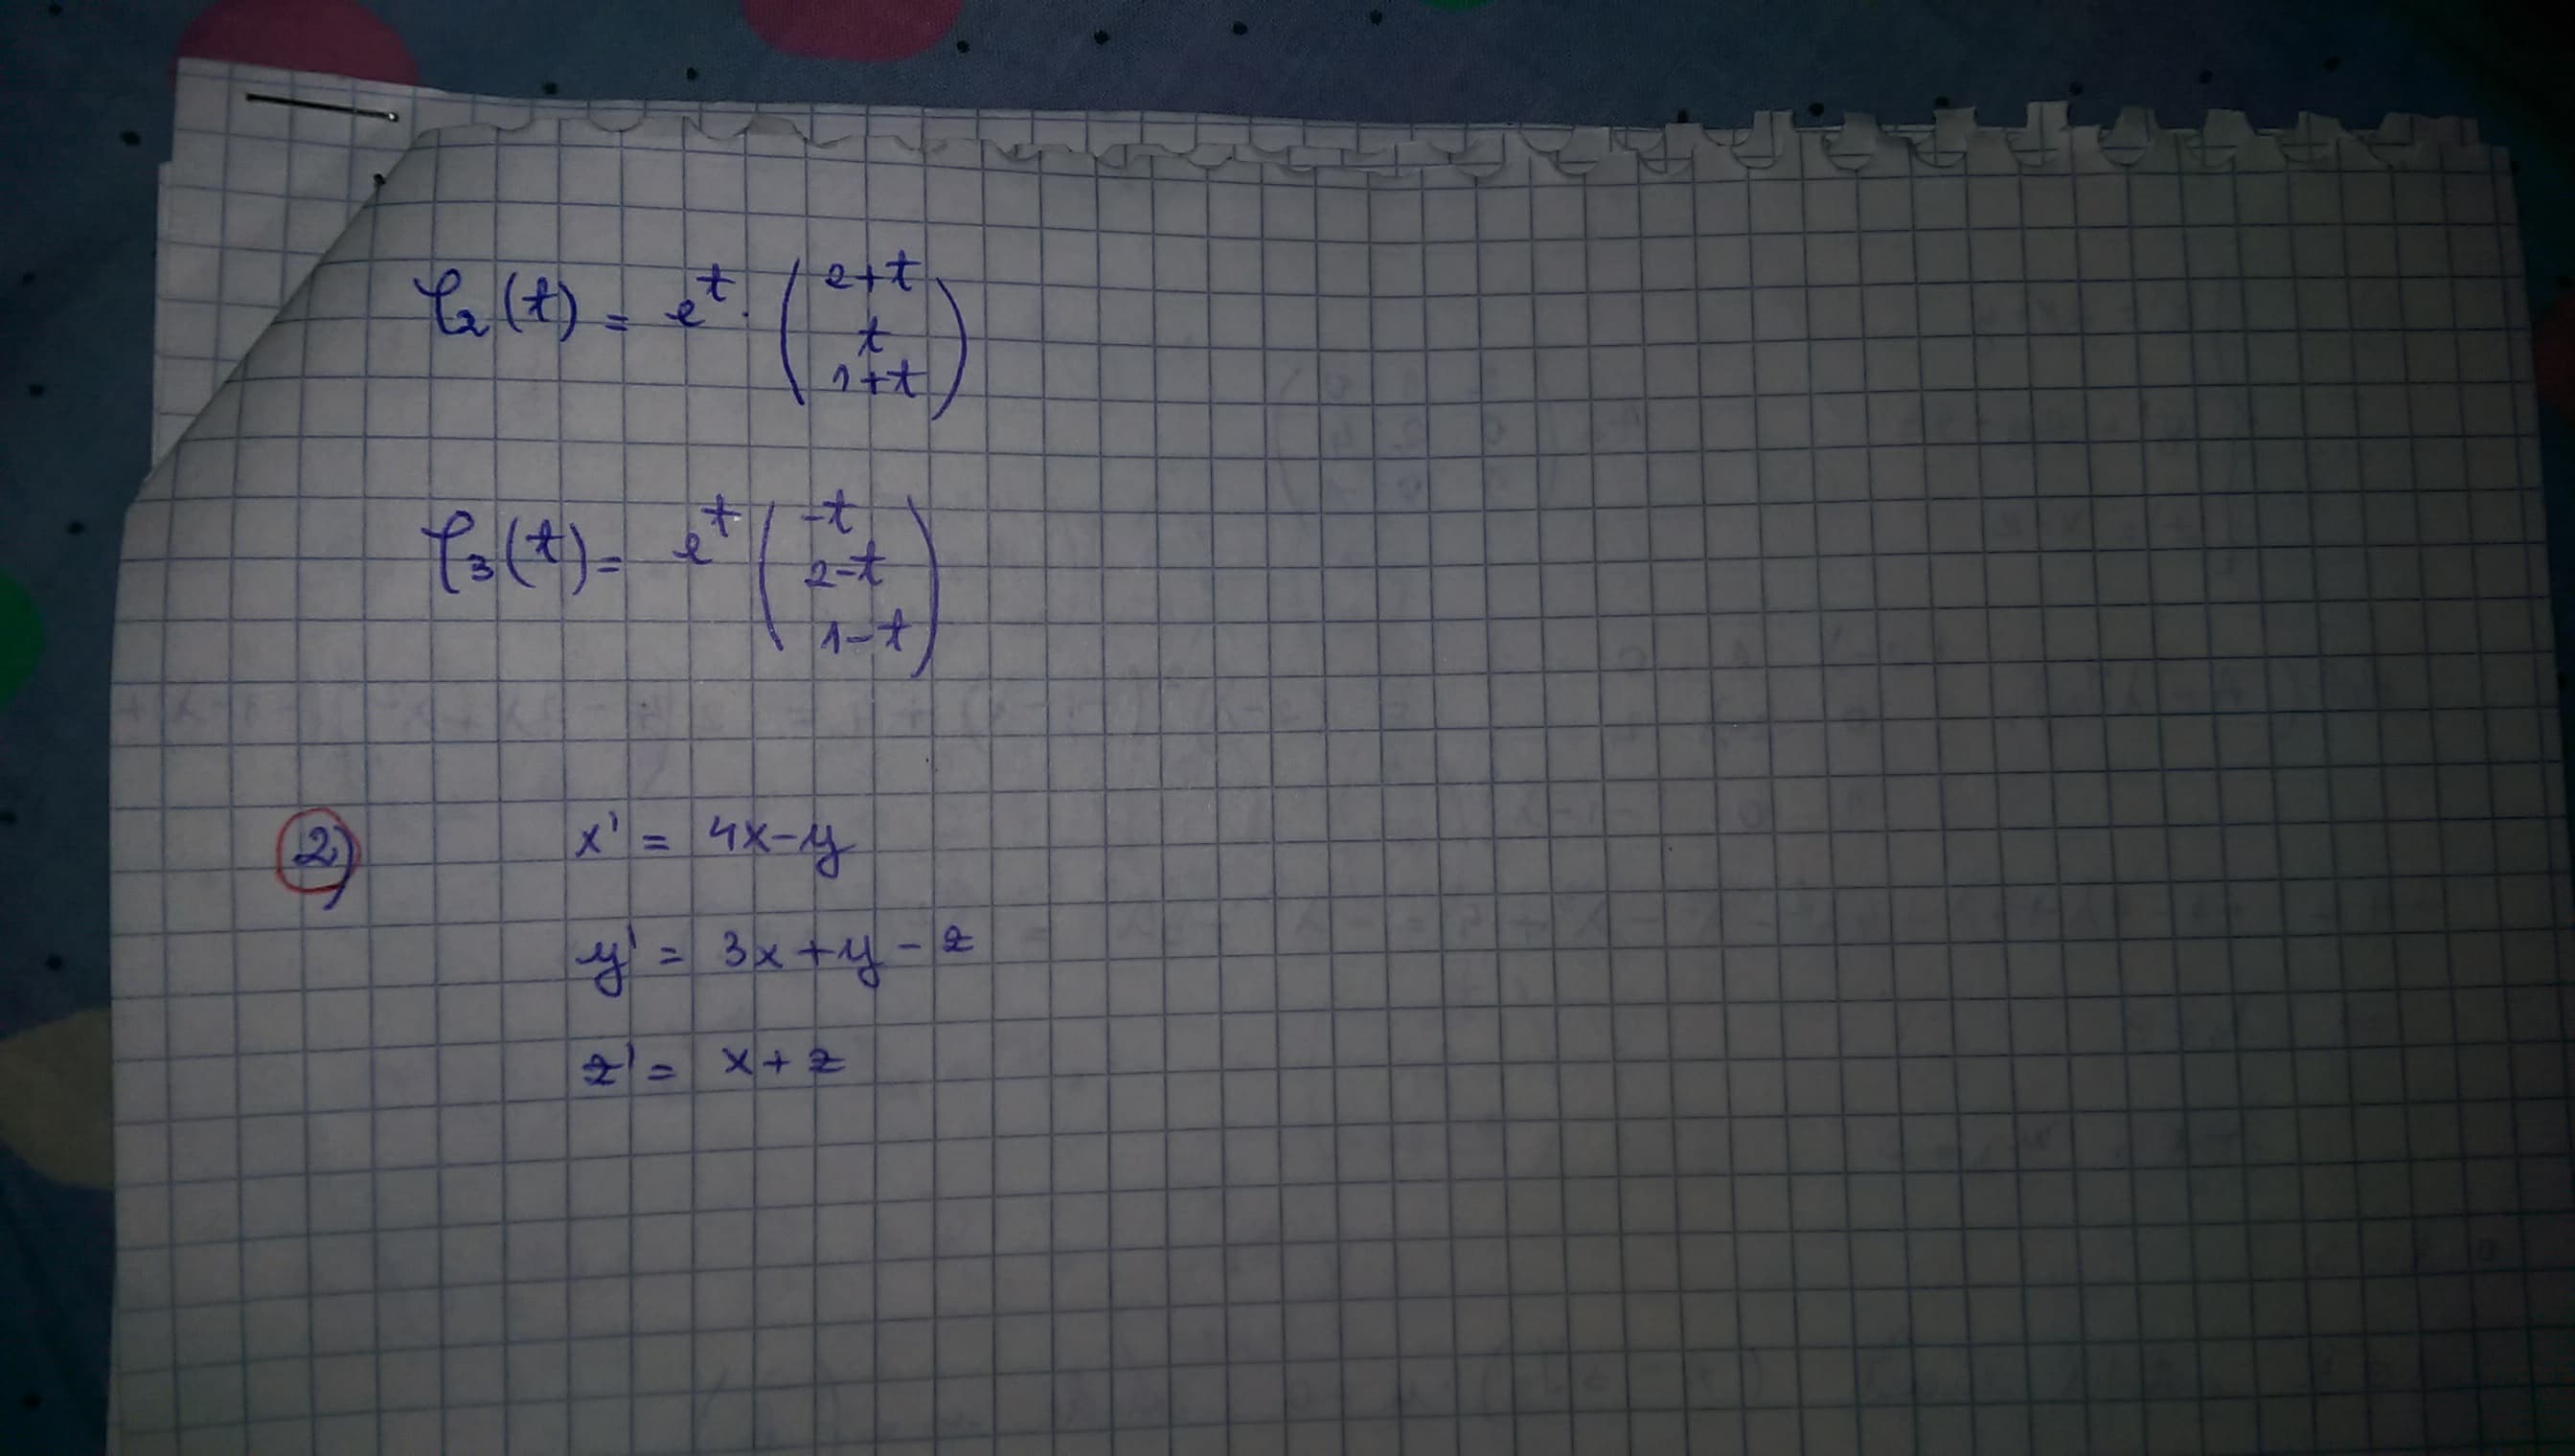 φ₂(t) = e^t · ( 2+t
t
1+t )
φ₃(t) = e^t ( -t
2-t
1-t )
2) x' = 4x-y
y' = 3x+y-z
z' = x+z